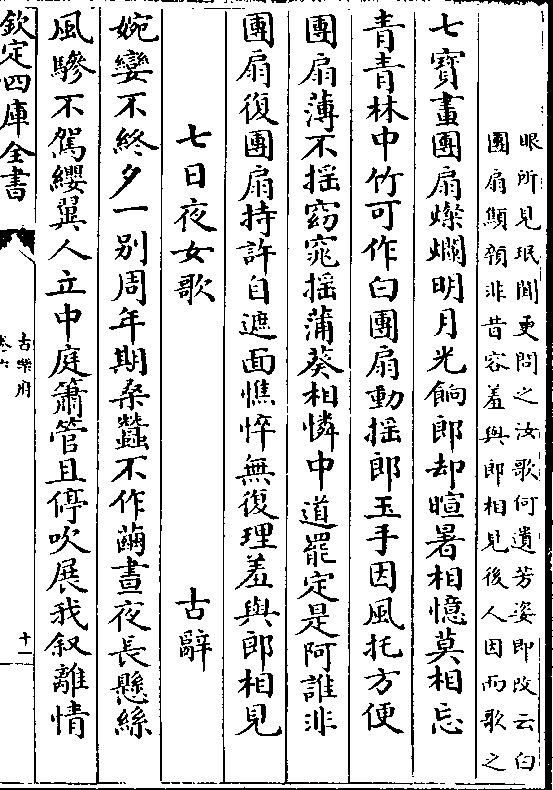 眼所見珉聞更問之汝歌何遺芳姿即改云白
團扇顦顇非昔容羞與郎相見後人因而歌之
七寳畫團扇燦爛明月光餉郎却暄暑相憶莫相忘
青青林中竹可作白團扇動揺郎玉手因風托方便
團扇薄不揺窈窕揺蒲葵相憐中道罷定是阿誰非
團扇復團扇持許自遮面憔悴無復理羞與郎相見
七日夜女歌 古辭
婉孌不終夕一别周年期桑蠶不作繭晝夜長懸絲
風驂不駕纓翼人立中庭簫管且停吹展我叙離情
欽定四庫全書
古樂府
卷六
十一